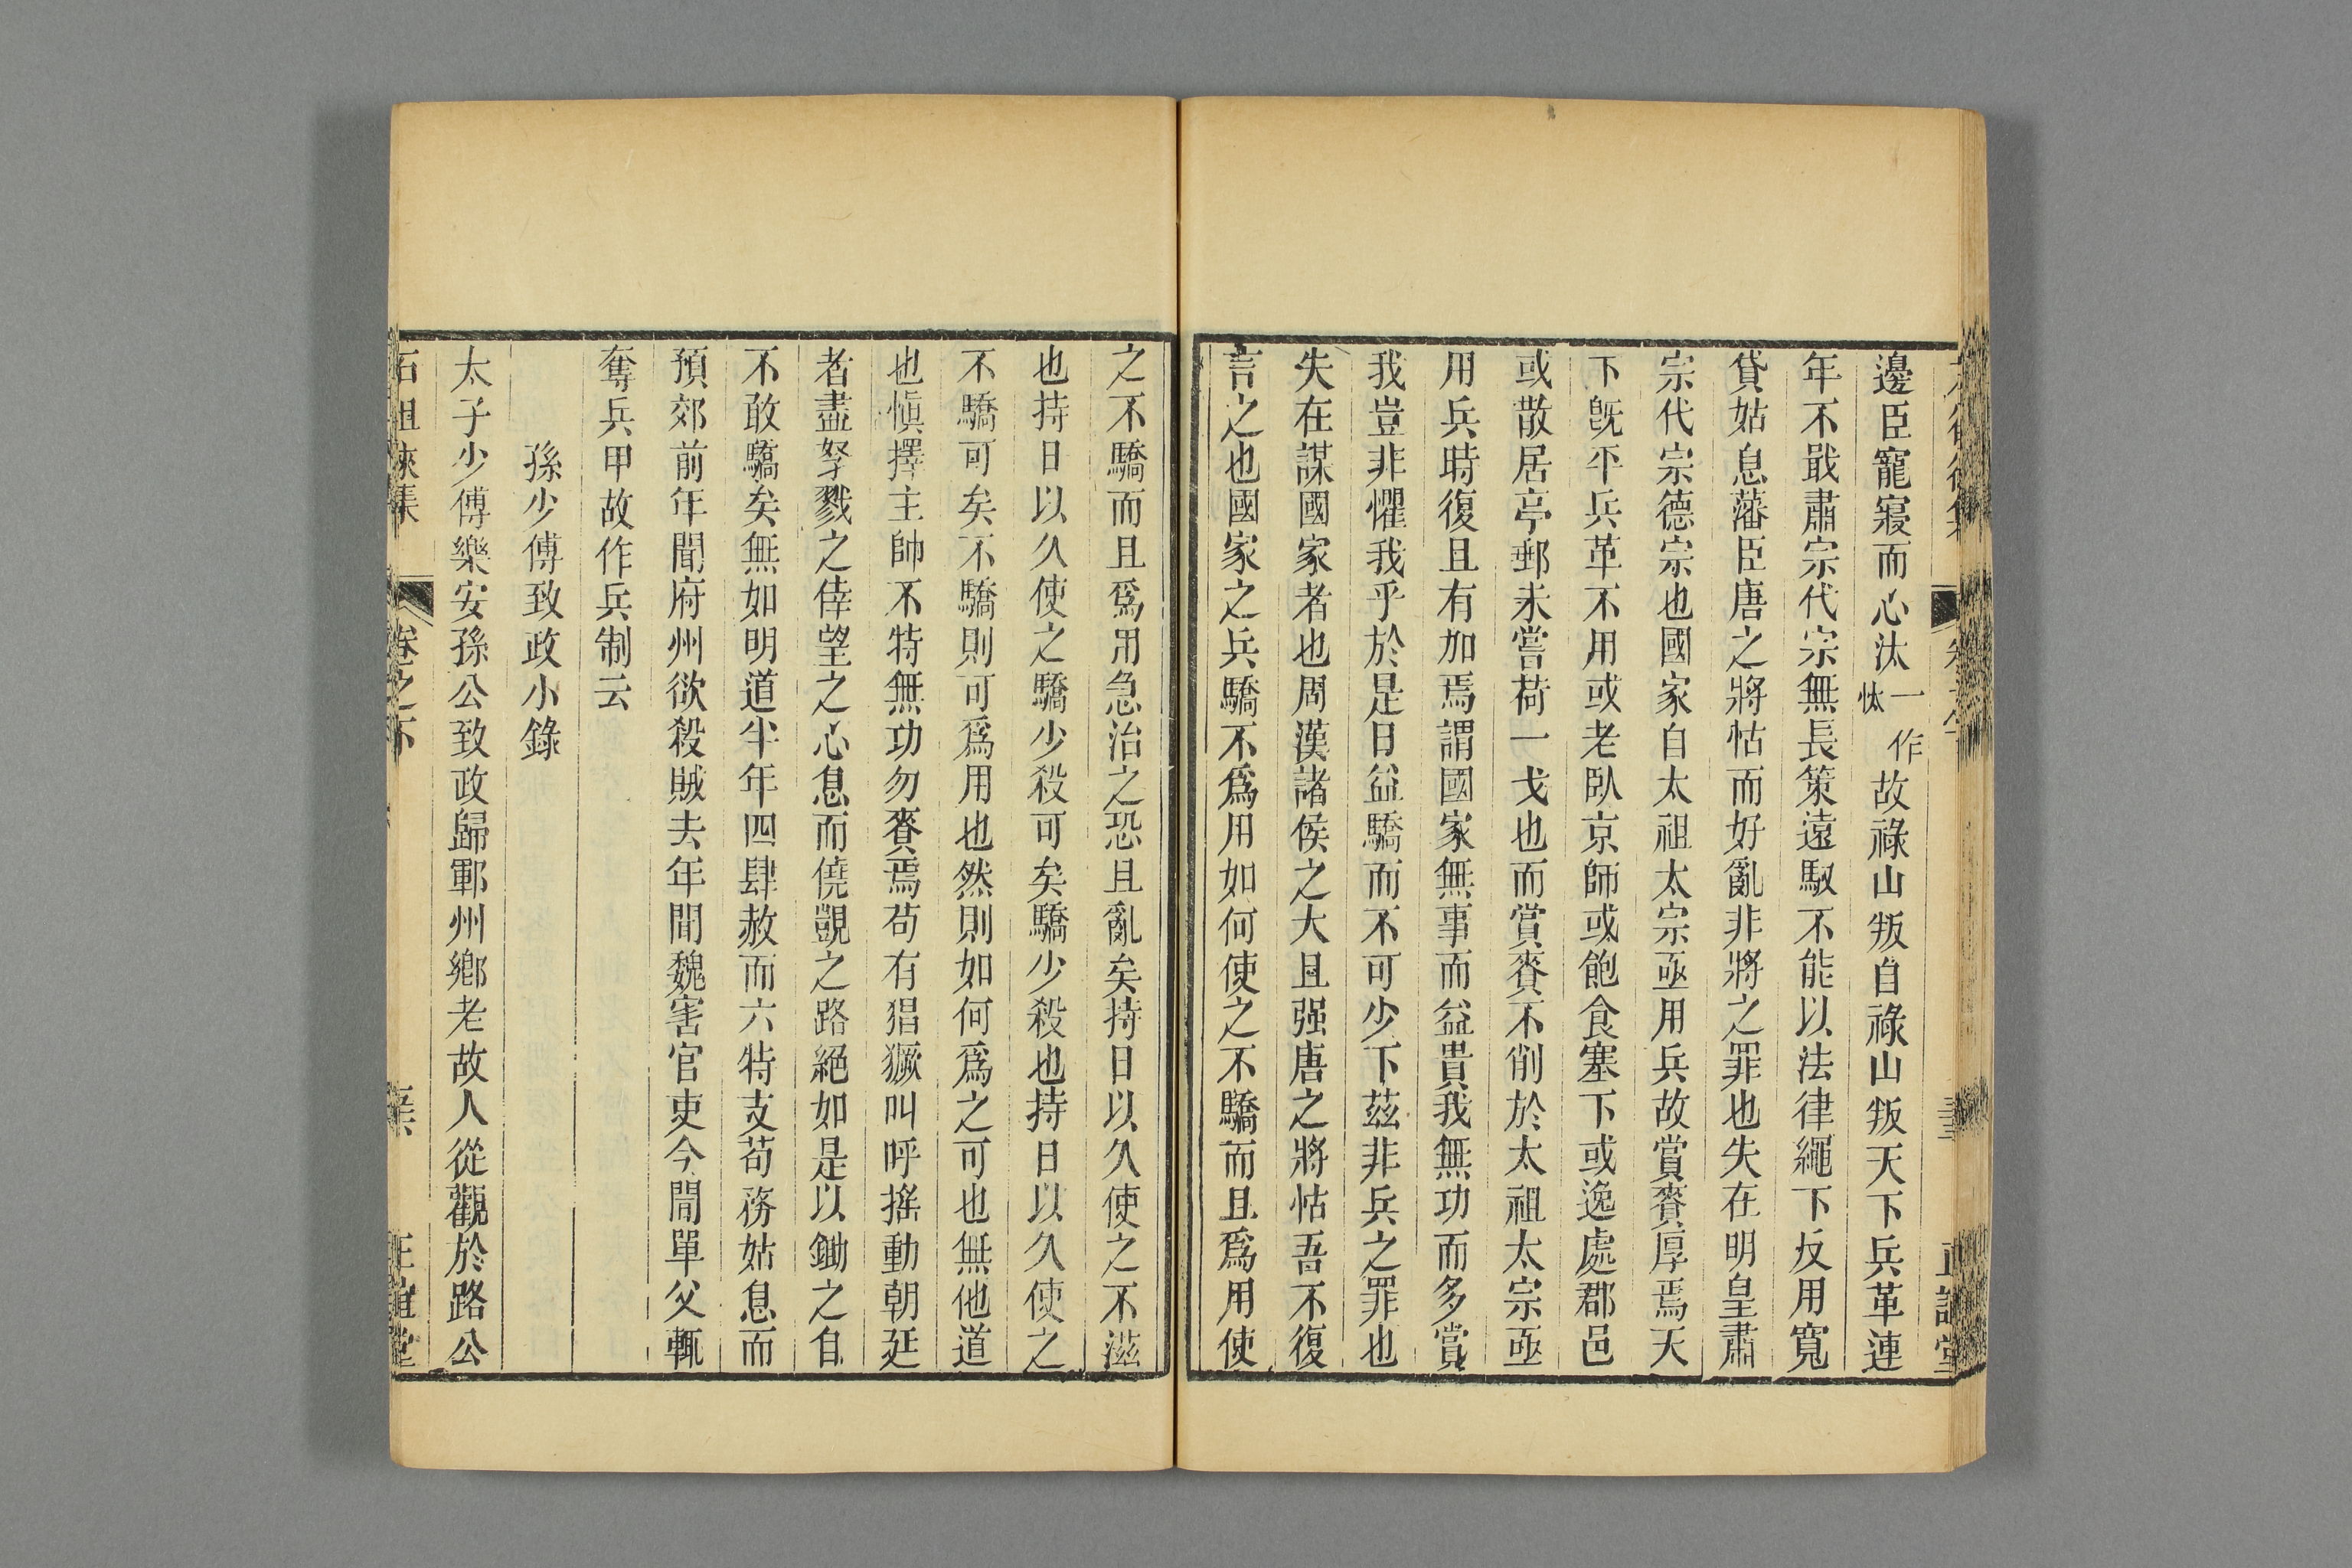 邊臣寵寢而心汰一作忲故祿山叛自祿山叛天下兵革連
年不戢肅宗代宗無長策遠馭不能以法律繩下反用寬
貸姑息藩臣唐之將怙而好亂非將之罪也失在明皇肅
宗代宗德宗也國家自太祖太宗亟用兵故賞賚厚焉天
下旣平兵革不用或老臥京師或飽食塞下或逸處郡邑
或散居亭郵未嘗荷一戈也而賞賚不削於太祖太宗亟
用兵時復且有加焉謂國家無事而益貴我無功而多賞
我豈非懼我乎於是日益驕而不可少下茲非兵之罪也
失在謀國家者也周漢諸侯之大且强唐之將怙吾不復
言之也國家之兵驕不爲用如何使之不驕而且爲用使
之不驕而且爲用急治之恐且亂矣持日以久使之不滋
也持日以久使之驕少殺可矣驕少殺也持日以久使之
不驕可矣不驕則可爲用也然則如何爲之可也無他道
也愼擇主帥不特無功勿賚焉苟有猖獗叫呼搖動朝廷
者盡孥戮之倖望之心息而僥覬之路絕如是以鋤之自
不敢驕矣無如明道半年四肆赦而六特支苟務姑息而
預郊前年閒府州欲殺賊去年閒魏害官吏今閒單父輒
奪兵甲故作兵制云
孫少傅致政小錄
太子少傅樂安孫公致政歸鄆州鄉老故人從觀於路公
石徂徠集 卷之下 正誼堂